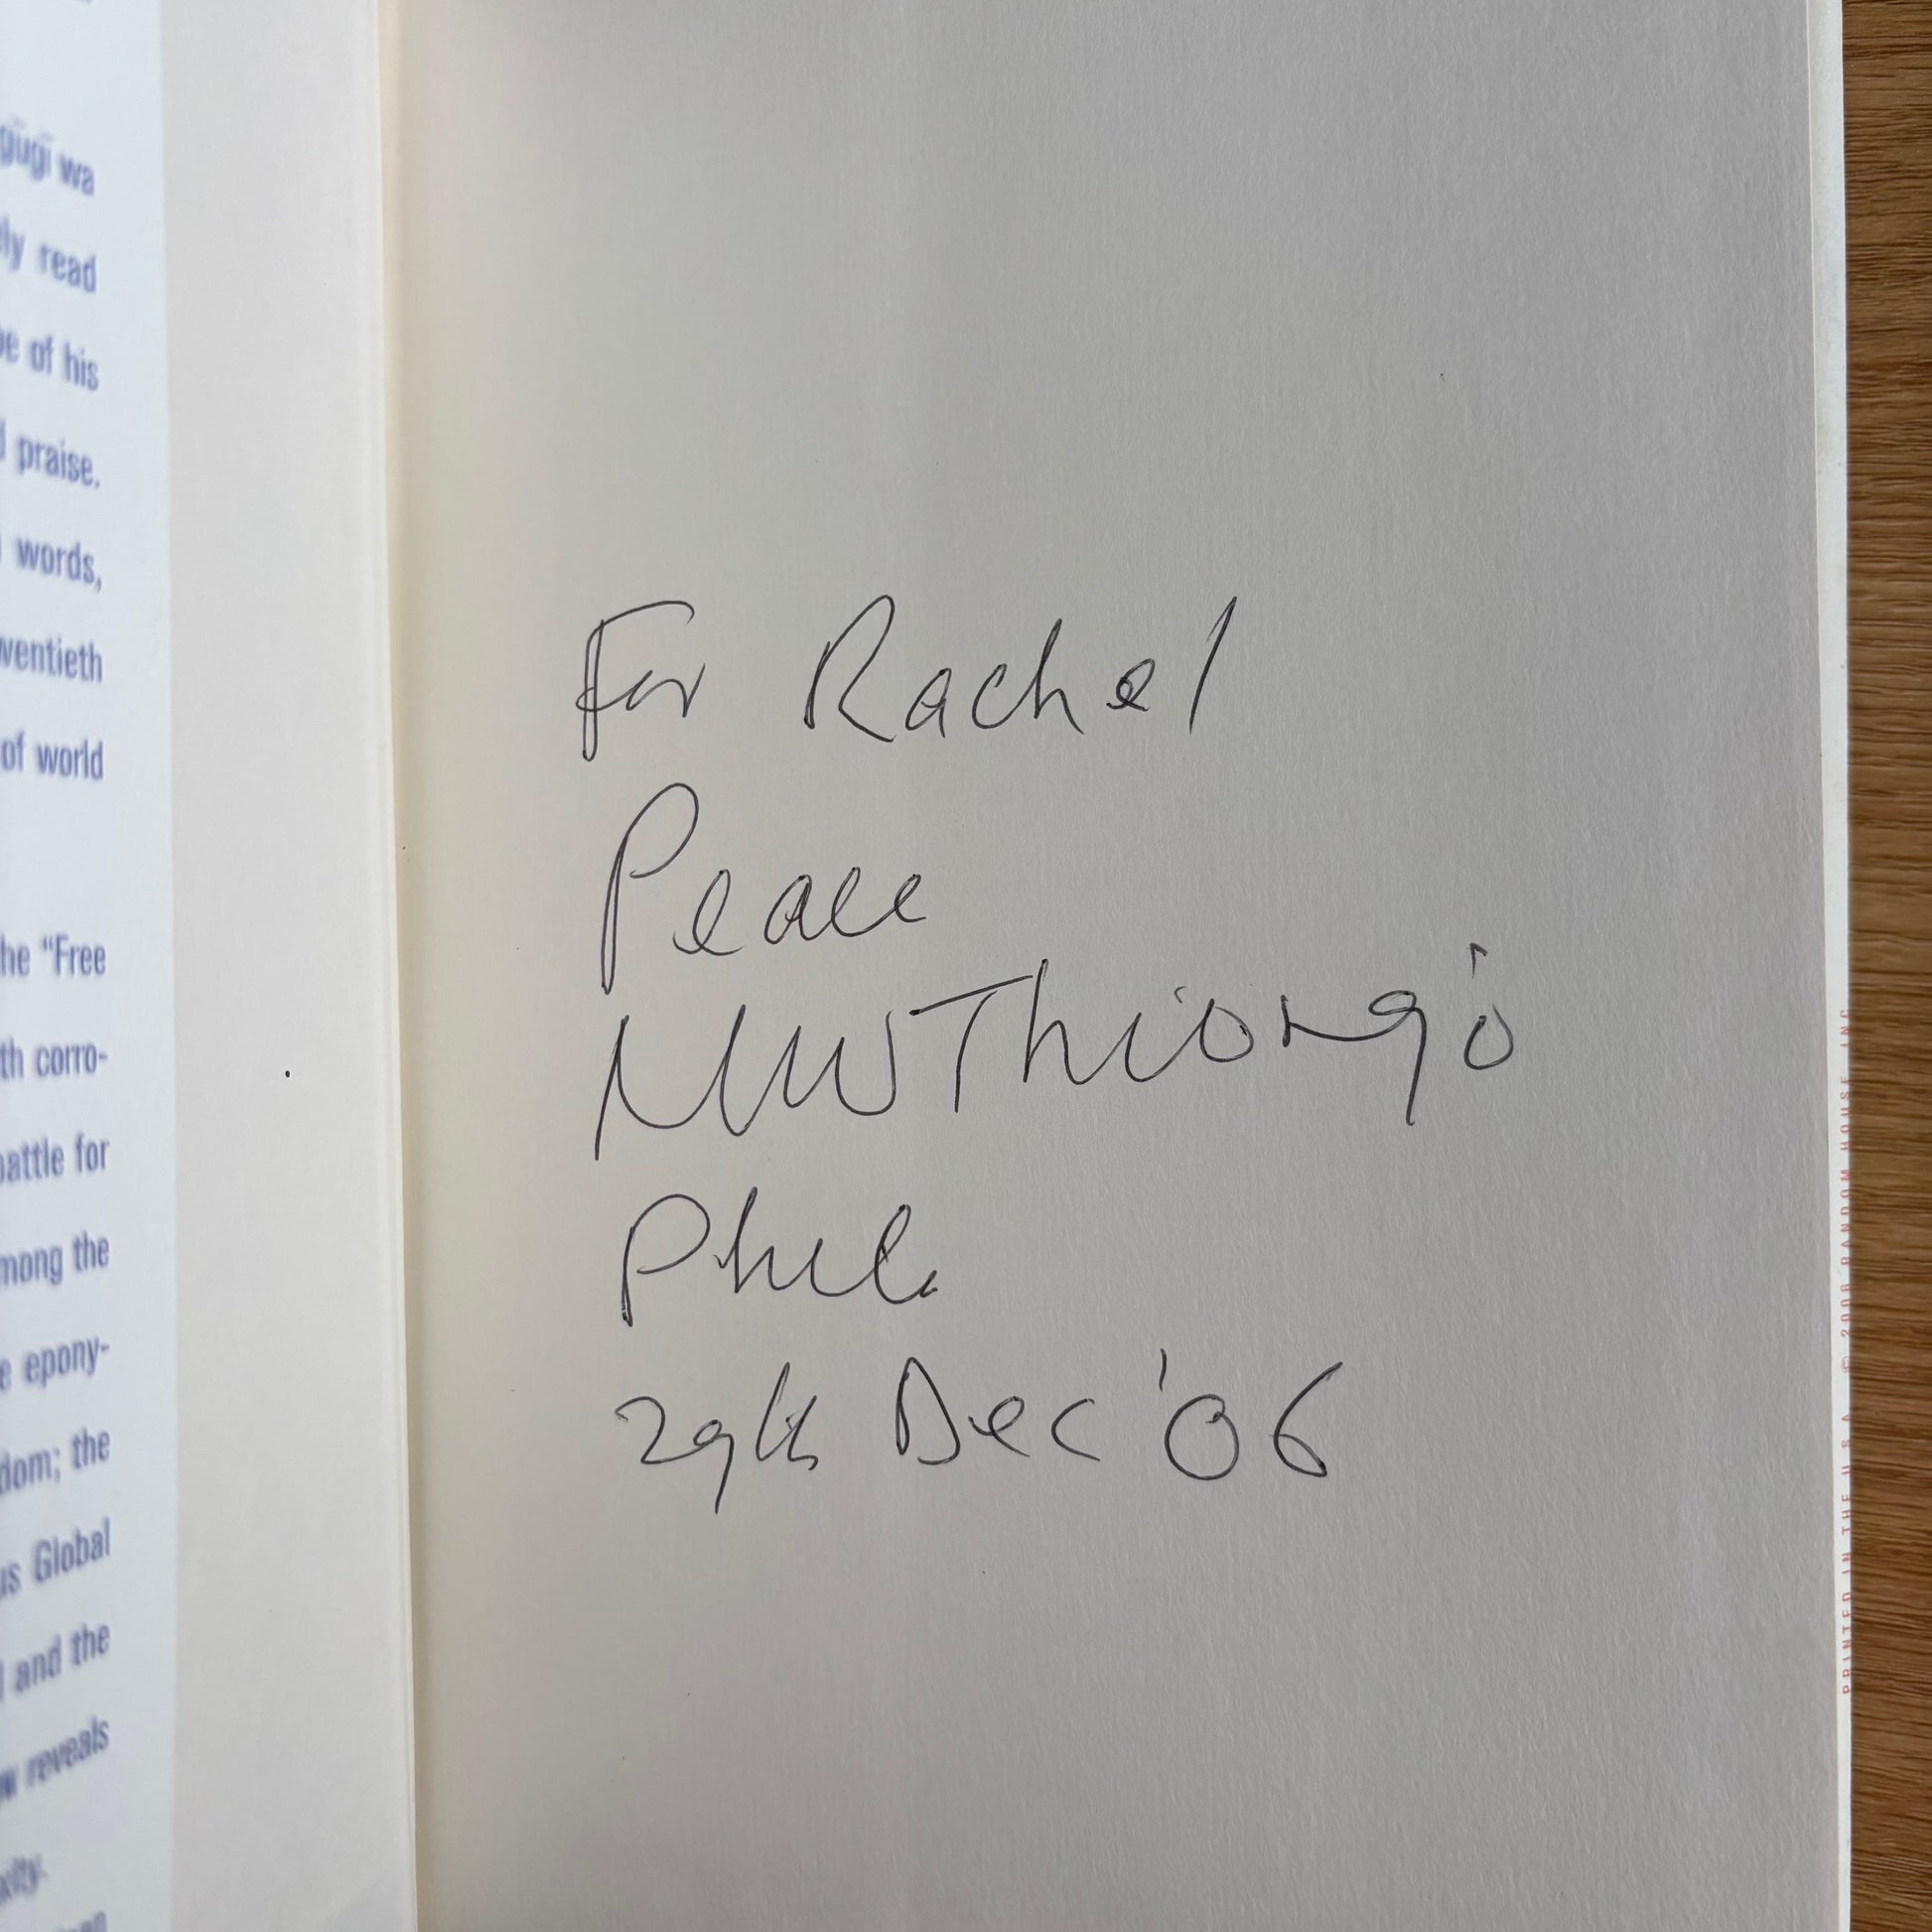 gũgĩ wa
ly read
e of his
praise.
words,
wentieth
of world
he “Free
th corro-
battle for
mong the
e epony-
dom; the
us Global
and the
w reveals
xity.
For Rachel
Peace
NWThiong'o
Phil.
29th Dec '06
PRINTED IN THE U.S.A. © 2006 RANDOM HOUSE, INC.